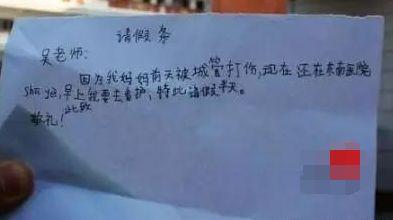 请假条
吴老师:
因为我妈妈前天被城管打伤,现在还在东南医院
shu ye,早上我要去看护,特此请假半天。
此致
敬礼!